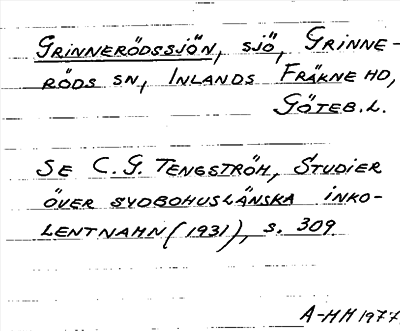 GRINNERÖDSSJÖN, SJÖ, GRINNE-
RÖDS SN, INLANDS FRÄKNE HD,
GÖTEB. L.
SE C. G. TENGSTRÖM, STUDIER
ÖVER SYDBOHUSLÄNSKA INKO-
LENTNAMN (1931), S. 309
A-HH 1977